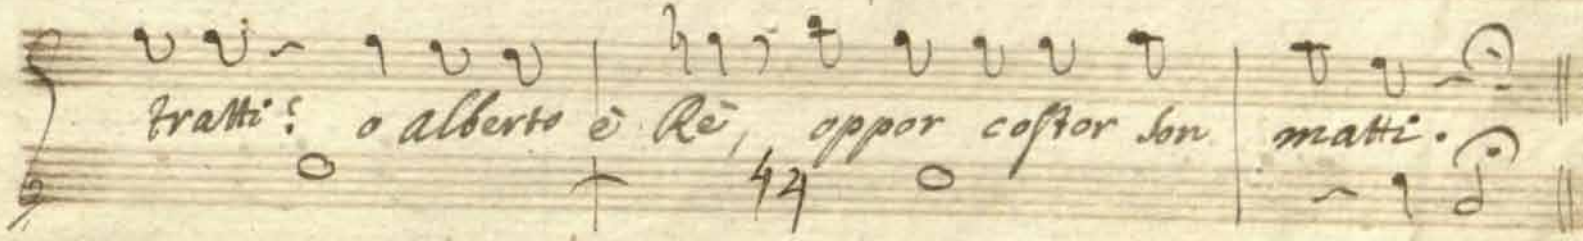 tratti? o Alberto è Rè, oppor costor son matti.
♮4